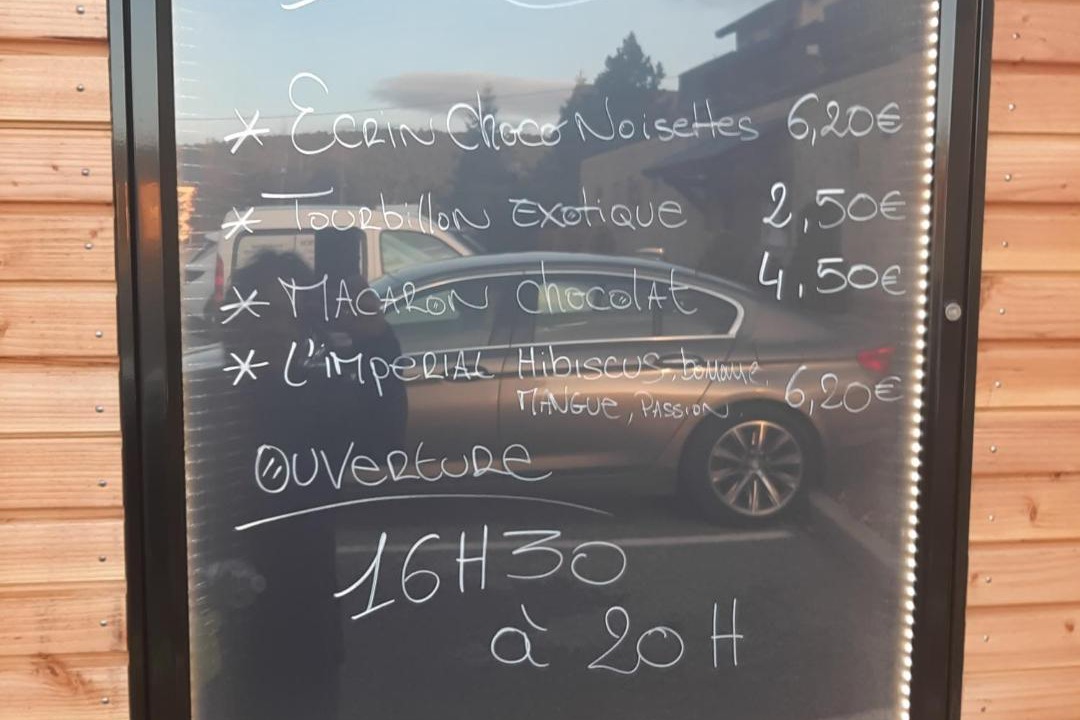 * Ecrin Choco Noisettes 6,20€
* Tourbillon Exotique 2,50€
* Macaron Chocolat 4,50€
* L'imperial Hibiscus,
Mangue, Passion. 6,20€
Ouverture
16H30
à 20H